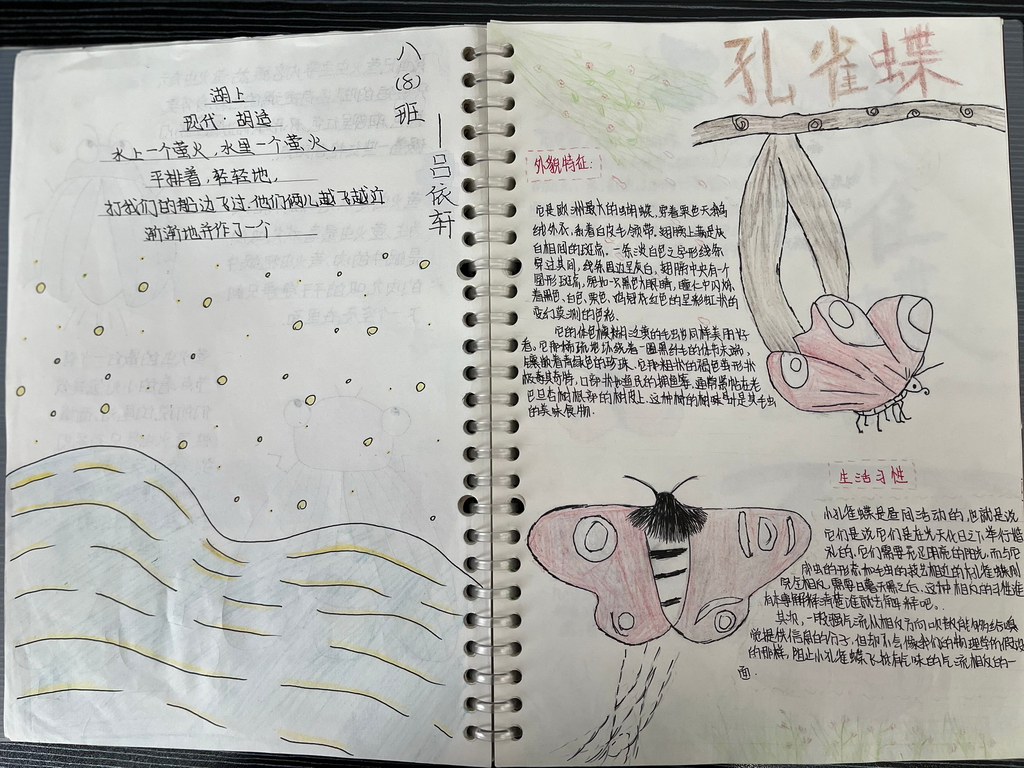 八(8)班
—吕依轩
湖上
现代·胡适
水上一个萤火,水里一个萤火,
平排着,轻轻地,
打我们的船边飞过.他们俩儿越飞越近
渐渐地并作了一个
孔雀蝶
外貌特征:
它是欧洲最大的蝴蝶,穿着栗色天鹅
绒外衣,系着白皮毛领带.翅膀上满是灰
白相间的斑点,一条淡白色之字形线条
穿过其间,线条周边呈灰白,翅膀中央有一个
圆形斑点,宛如一只黑色大眼睛,瞳仁中闪烁
着黑色、白色、栗色、鸡冠花红色的呈彩虹状的
变幻莫测的色彩.
它的体色模糊泛黄的毛虫也同样美丽好
看.它那稀疏地环绕着一圈黑纤毛的体节末端,
上镶嵌着青绿色的珍珠.它那粗壮的褐色茧形状
极其奇特,口部状如渔民的捕鱼篓,通常紧贴在老
巴旦杏树根部的树皮上,这种树的树叶是其毛虫
的美味食物.
生活习性
小孔雀蝶是昼间活动的,也就是说
它们是说,它们是在光天化日之下举行婚
礼的.它们需要充足明亮的阳光,而与它
成虫的形态和毛虫的技艺相近的大孔雀蝶则
完全相反,需要日暮天黑之后,这种相反的习性谁
有本事解释清楚谁就去解释吧.
其次,一股强气流从相反方向吹散能够给嗅
觉提供信息的分子,但却不会像我们的物理学的假设
的那样,阻止小孔雀蝶飞抵有气味的气流相反的一
面.